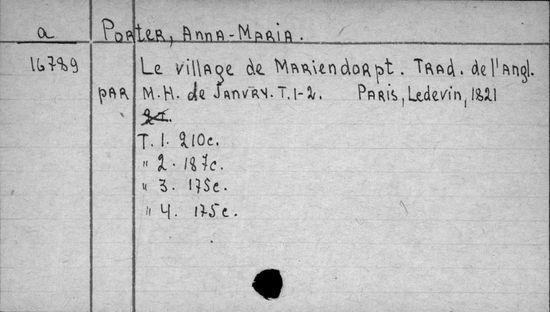 a Porter, Anna-Maria.
16789 Le village de Mariendorpt. Trad. de l'angl.
par M.H. de Janvry. T.1-2. Paris, Ledevin, 1821
T. 1. 210c.
" 2. 187c.
" 3. 175c.
" 4. 175c.